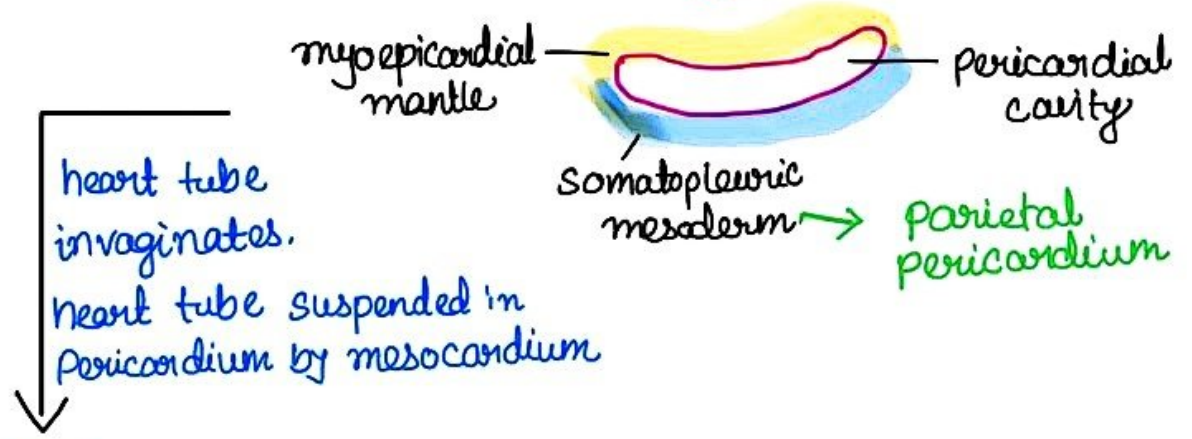 myoepicardial
mantle
pericardial
cavity
somatopleuric
mesoderm
parietal
pericardium
heart tube
invaginates.
heart tube suspended in
pericardium by mesocardium